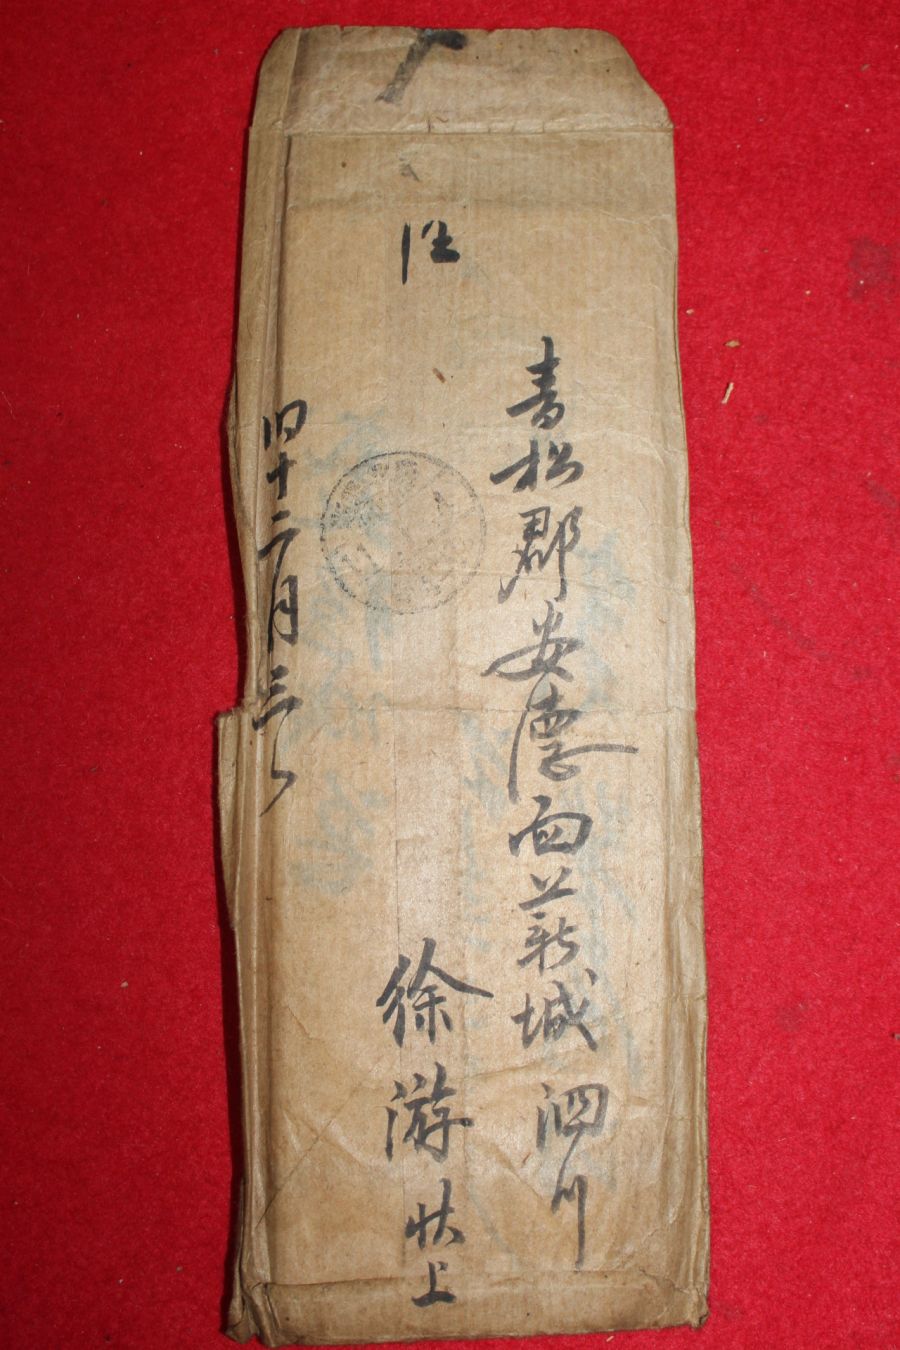 青松郡安德面薪城 泗川
徐游狀上
旧十二月三日